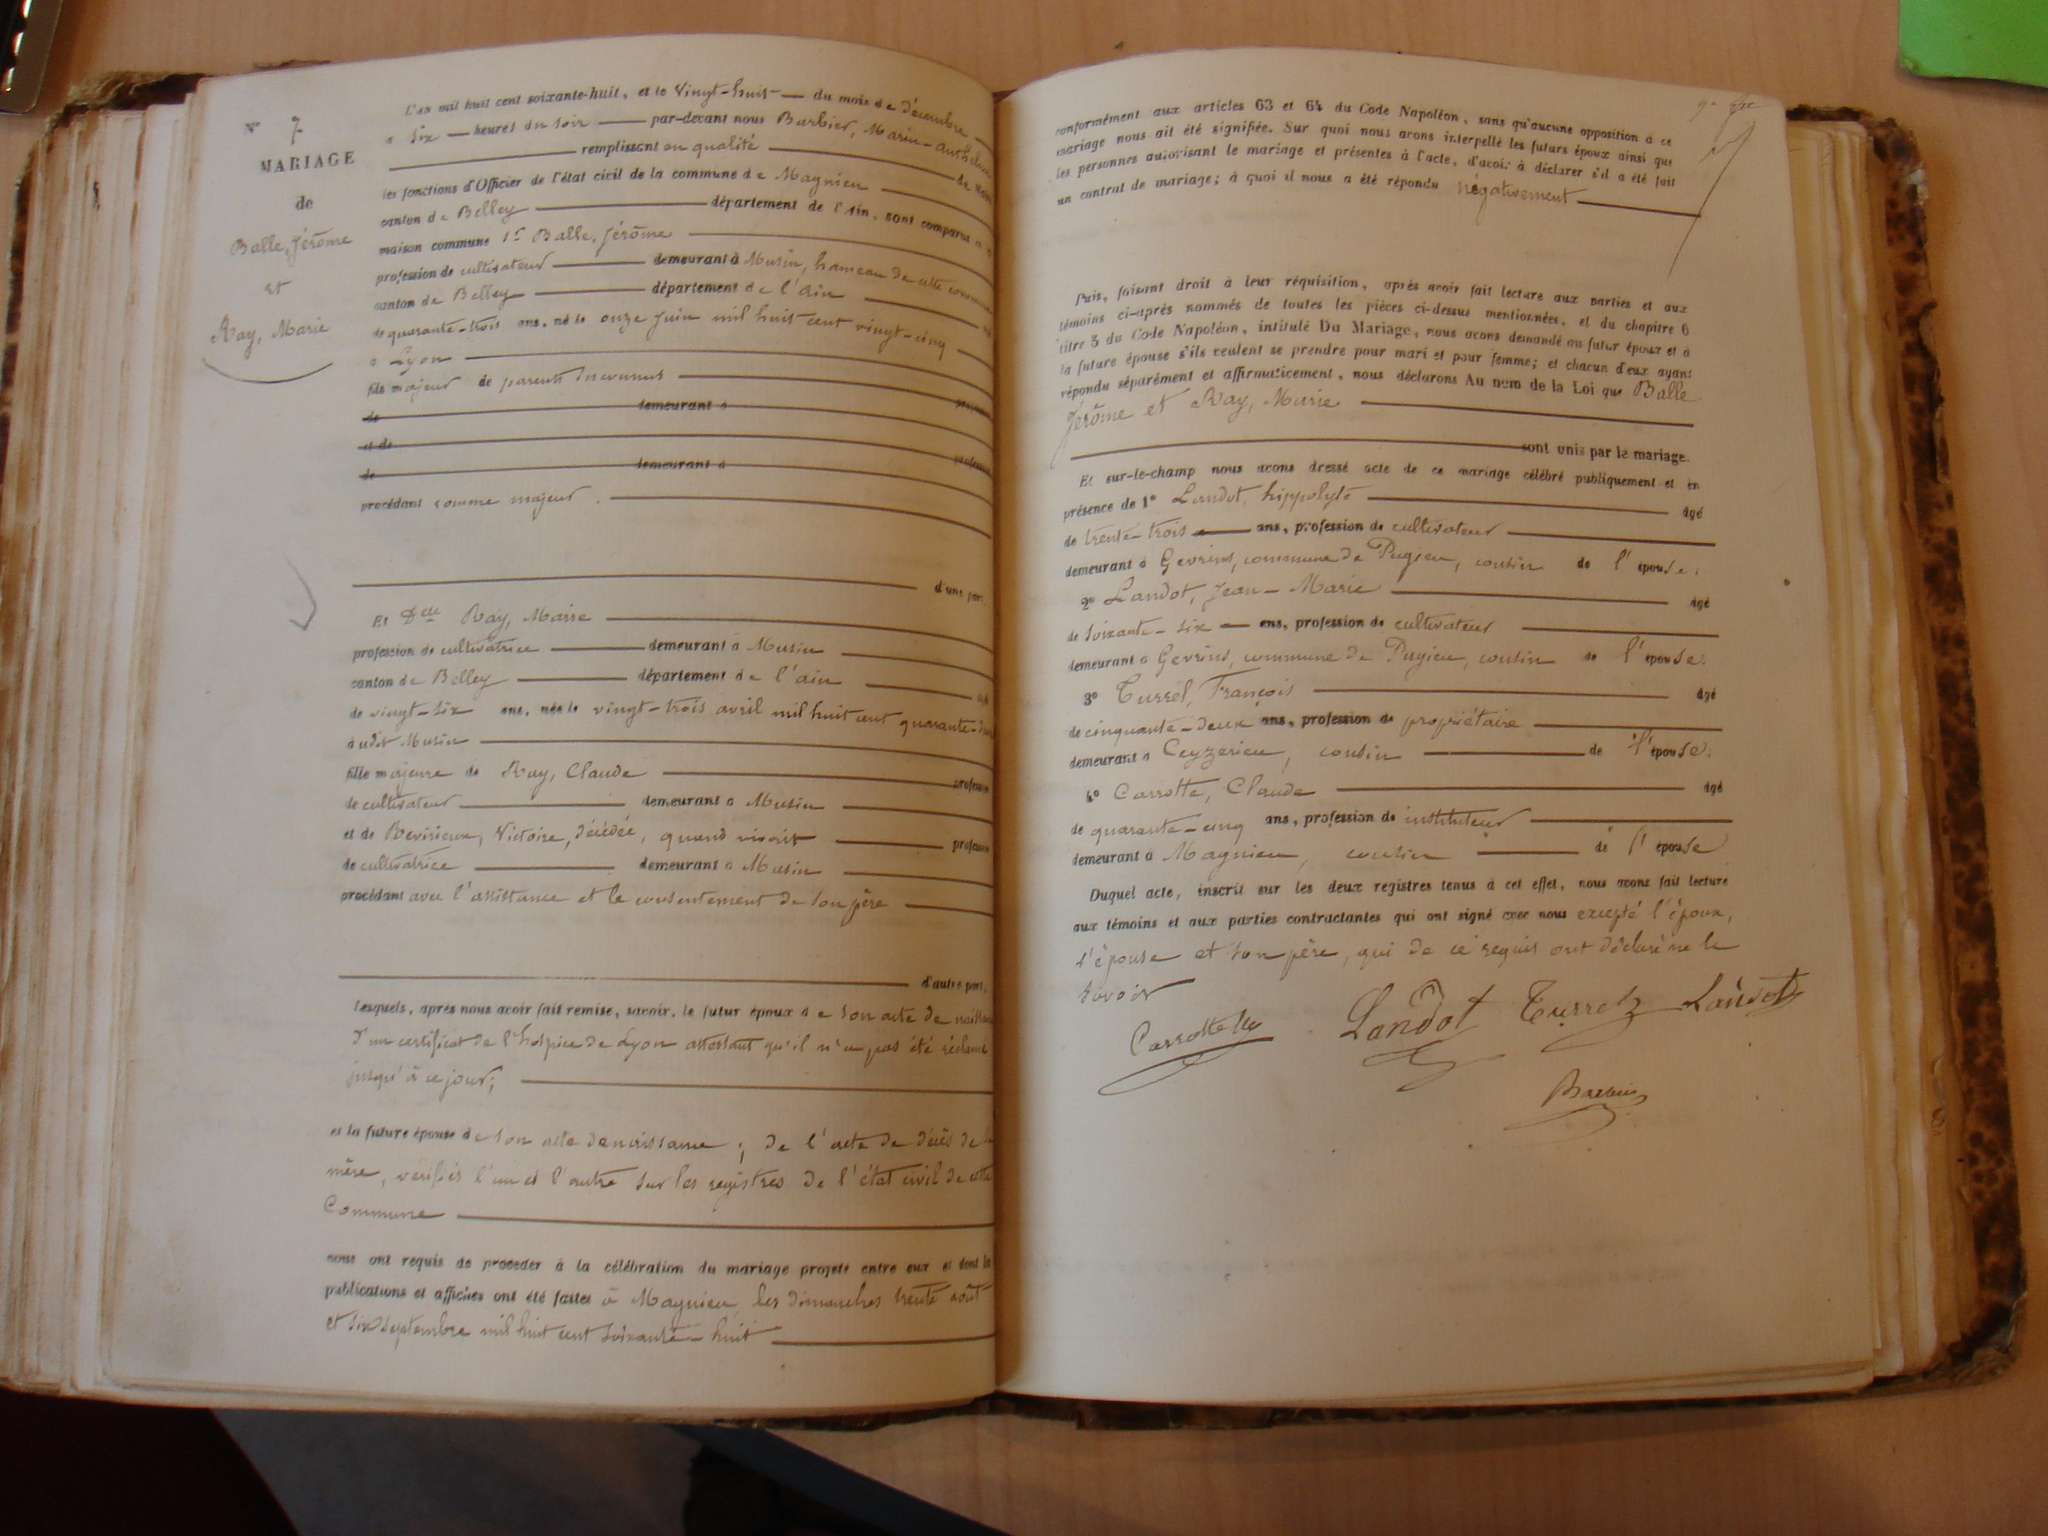 N° 7
MARIAGE
de
Balle, Jérôme
et
Ray, Marie
L'an mil huit cent soixante-huit, et le vingt-huit du mois de décembre
à six heures du soir par-devant nous Barbier, Marin-
remplissant en qualité de
les fonctions d'Officier de l'état civil de la commune de Magnieu
canton de Belley département de l'Ain, sont comparus à
maison commune 1° Balle, Jérôme
profession de cultivateur demeurant à Musin, hameau de cette commune
canton de Belley département de l'ain
de quarante-trois ans, né le onze juin mil huit cent vingt-cinq
à Lyon
fils majeur de parents inconnus
de demeurant à
et de
de demeurant à
procédant comme majeur.
d'une part.
Et Delle Ray, Marie
profession de cultivatrice demeurant à Musin
canton de Belley département de l'ain
de vingt-six ans, née le vingt-trois avril mil huit cent quarante-deux
audit Musin
fille majeure de Ray, Claude profession
de cultivateur demeurant à Musin
et de Victoire, décédée, quand vivait profession
de cultivatrice demeurant à Musin
procédant avec l'assistance et le consentement de son père
d'autre part.
Lesquels, après nous avoir fait remise, savoir, le futur époux de son acte de naissance
d'un certificat de l'hospice de Lyon attestant qu'il n'a pas été réclamé
jusqu'à ce jour;
et la future épouse de son acte de naissance; de l'acte de décès de
mère, vérifiés l'un et l'autre sur les registres de l'état civil de cette
Commune
nous ont requis de procéder à la célébration du mariage projeté entre eux et dont les
publications et affiches ont été faites à Magnieu, les dimanches trente août
et six septembre mil huit cent soixante-huit
conformément aux articles 63 et 64 du Code Napoléon, sans qu'aucune opposition à ce
mariage nous ait été signifiée. Sur quoi nous avons interpellé les futurs époux ainsi que
les personnes autorisant le mariage et présentes à l'acte, d'avoir à déclarer s'il a été fait
un contrat de mariage; à quoi il nous a été répondu négativement
Puis, faisant droit à leur réquisition, après avoir fait lecture aux parties et aux
témoins ci-après nommés de toutes les pièces ci-dessus mentionnées, et du chapitre 6
titre 5 du Code Napoléon, intitulé Du Mariage, nous avons demandé au futur époux et à
la future épouse s'ils veulent se prendre pour mari et pour femme; et chacun d'eux ayant
répondu séparément et affirmativement, nous déclarons Au nom de la Loi que Balle
Jérôme et Ray, Marie
sont unis par le mariage.
Et sur-le-champ nous avons dressé acte de ce mariage célébré publiquement et en
présence de 1° Landot, hippolyte âgé
de trente-trois ans, profession de cultivateur
demeurant à Gevrins, commune de Pugieu, cousin de l'épouse.
2° Landot, Jean-Marie âgé
de soixante-six ans, profession de cultivateur
demeurant à Gevrins, commune de Pugieu, cousin de l'épouse.
3° Turrel, François âgé
de cinquante-deux ans, profession de propriétaire
demeurant à Ceyzerieu, cousin de l'épouse.
4° Carrotte, Claude âgé
de quarante-cinq ans, profession de instituteur
demeurant à Magnieu, cousin de l'épouse
Duquel acte, inscrit sur les deux registres tenus à cet effet, nous avons fait lecture
aux témoins et aux parties contractantes qui ont signé avec nous excepté l'époux,
l'épouse et son père, qui de ce requis ont déclaré ne le
savoir
Carrotte Landot Turrel Landot
Barbier